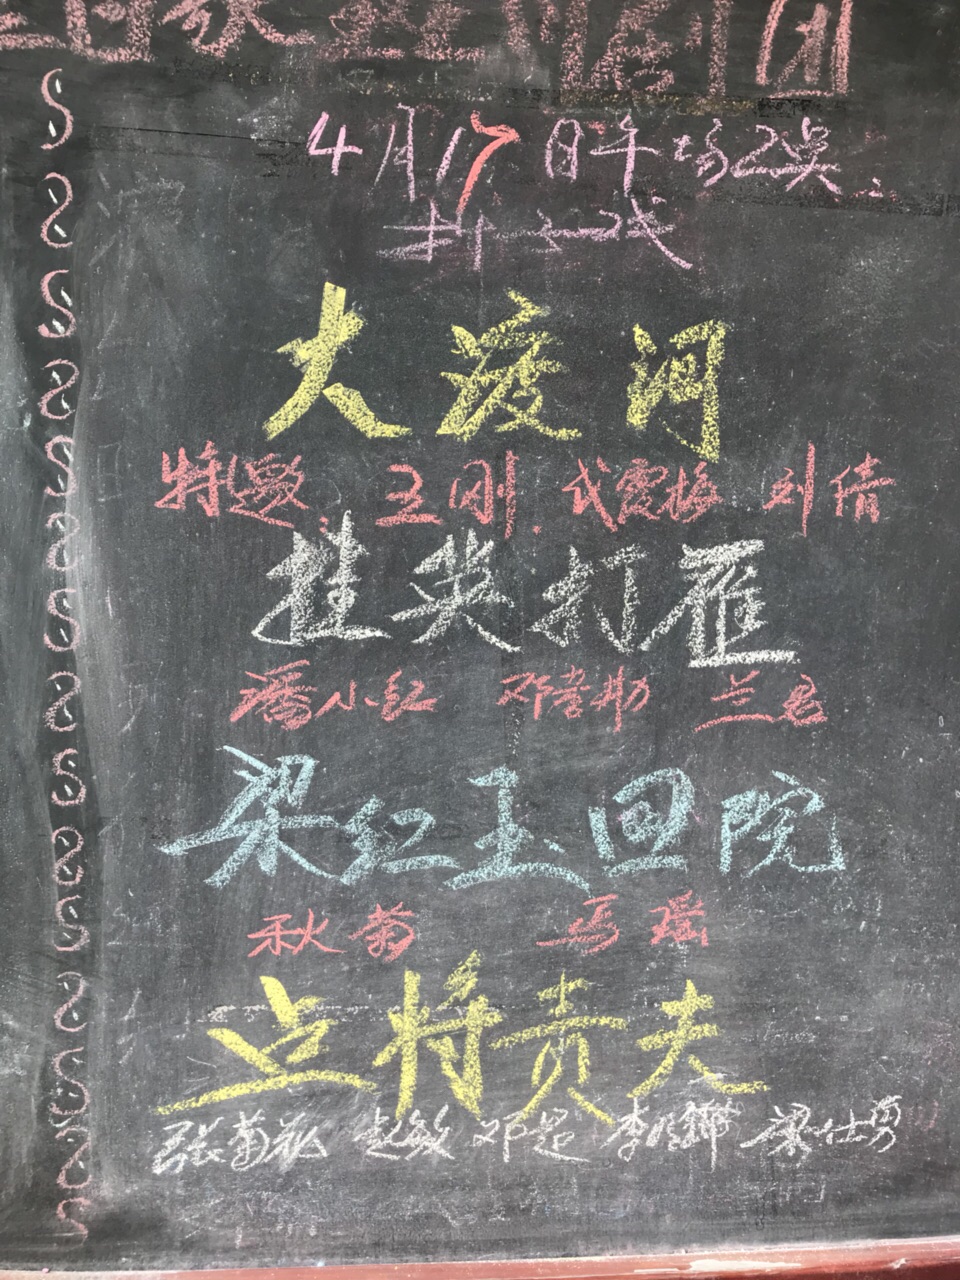 川剧团
4月17日午场2点
折子戏
大渡河
特邀:王刚.代霞梅 刘倩
挂英打雁
潘小红 邓学勋 兰君
梁红玉回院
秋菊 马瑶
点将责夫
张菊花 赵敏 邓超 李 梁仕勇